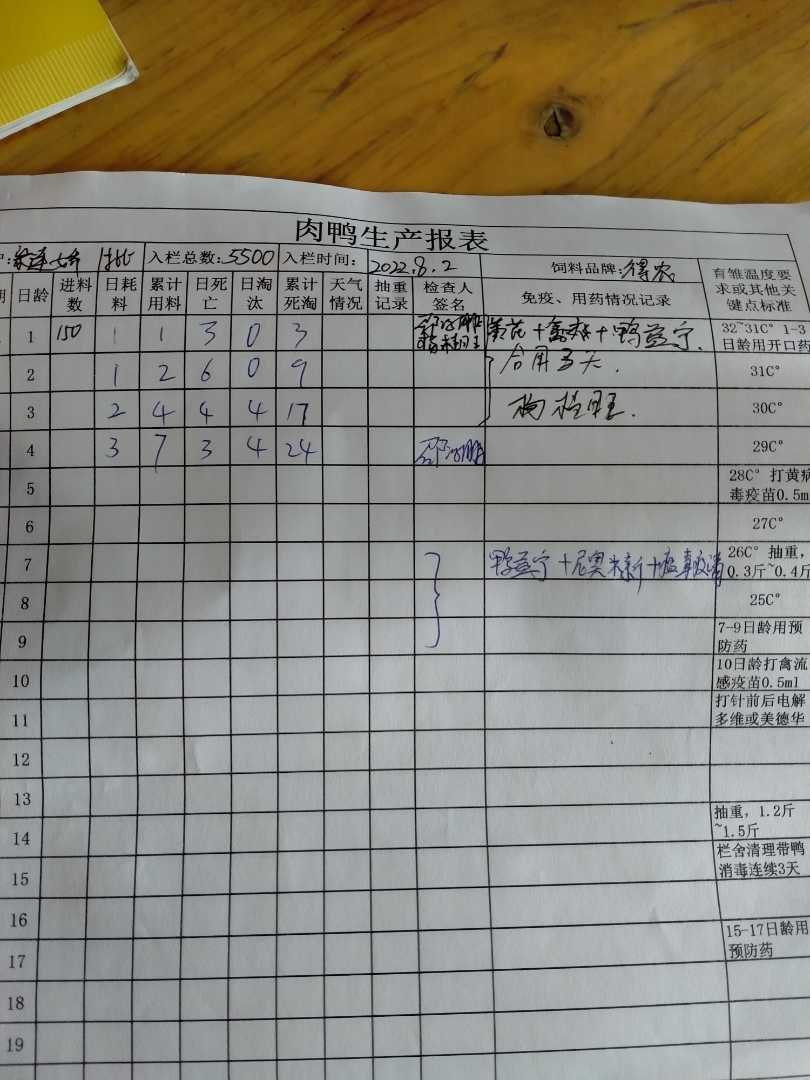 肉鸭生产报表
入栏总数:5500 入栏时间: 2022.8.2 饲料品牌:得农 育雏温度要求或其他关键点标准
日龄 进料数 日耗料 累计用料 日死亡 日淘汰 累计死淘 天气情况 抽重记录 检查人签名 免疫、用药情况记录
1 150 1 1 3 0 3 鸭益宁. 32~31C° 1-3日龄用开口药
2 1 2 6 0 9 合用3天. 31C°
3 2 4 4 4 17 30C°
4 3 7 3 4 24 29C°
5 28C° 打黄病毒疫苗0.5m
6 27C°
7 鸭益宁+尼奥 26C° 抽重,0.3斤~0.4斤
8 25C°
9 7-9日龄用预防药
10 10日龄打禽流感疫苗0.5ml
11 打针前后电解多维或美德华
12
13
14 抽重，1.2斤~1.5斤
15 栏舍清理带鸭消毒连续3天
16
17 15-17日龄用预防药
18
19